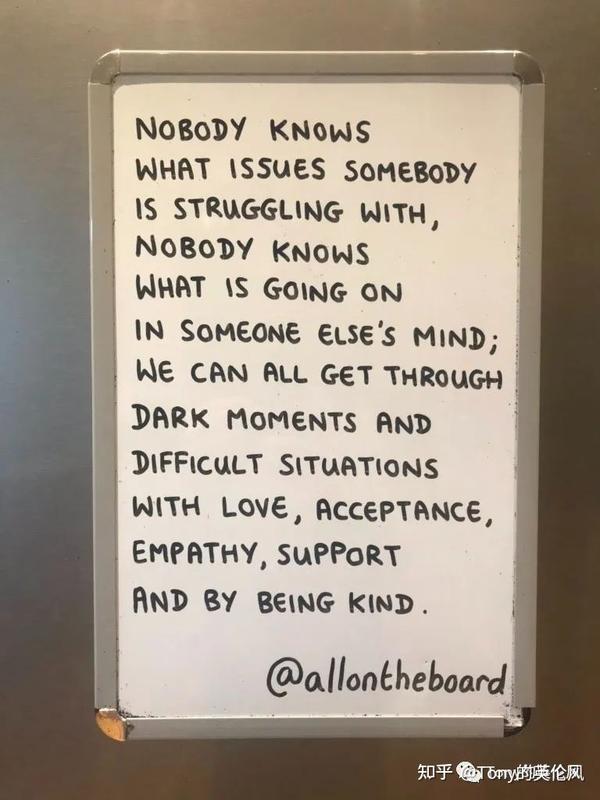 NOBODY KNOWS
WHAT ISSUES SOMEBODY
IS STRUGGLING WITH,
NOBODY KNOWS
WHAT IS GOING ON
IN SOMEONE ELSE'S MIND;
WE CAN ALL GET THROUGH
DARK MOMENTS AND
DIFFICULT SITUATIONS
WITH LOVE, ACCEPTANCE,
EMPATHY, SUPPORT
AND BY BEING KIND.
@allontheboard
知乎 @Tony的英伦风